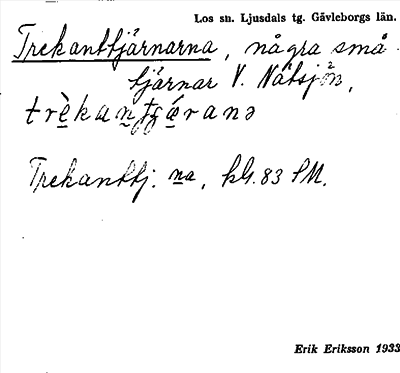 Los sn. Ljusdals tg. Gävleborgs län.
Trekanttjärnarna, några små
tjärnar V. Nätsjön,
trὲkan̠tjǽ̠ranə
Trekanttj. na, kbl. 83 SM.
Erik Eriksson 1933